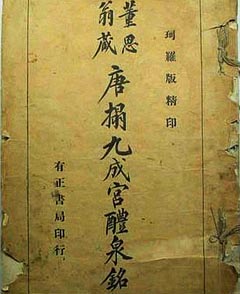 珂羅版精印
董思翁藏
唐搨九成宮醴泉銘
有正書局印行